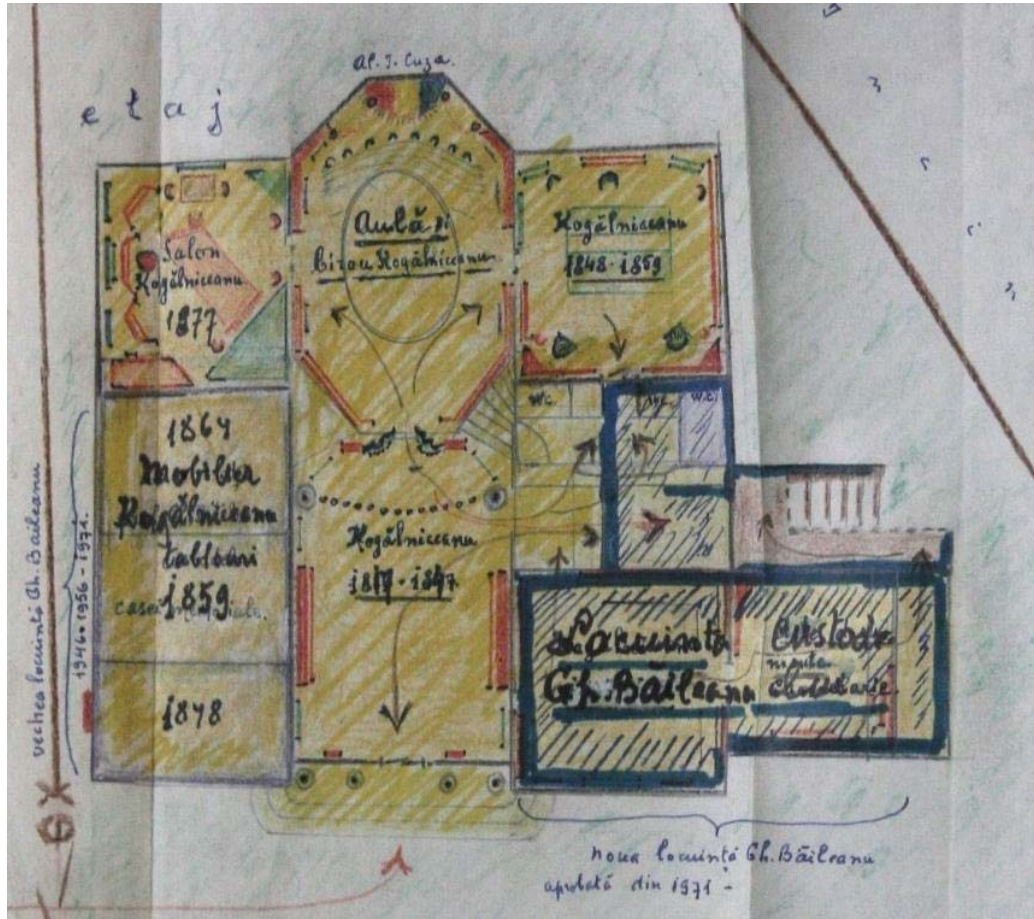 Al. I. Cuza.
etaj
Salon
Kogălniceanu
1877
Aulă și
birou Kogălniceanu
Kogălniceanu
1848-1859
1864
Mobilier
Kogălniceanu
tablouri
1859
1878
Kogălniceanu
1817-1847
W.C.
W.C.
W.C.
Locuința
Gh. Băileanu
Custode
vechea locuință Gh. Baileanu
1946-1956-1971.
noua locuință Gh. Băileanu
aprobată din 1971-